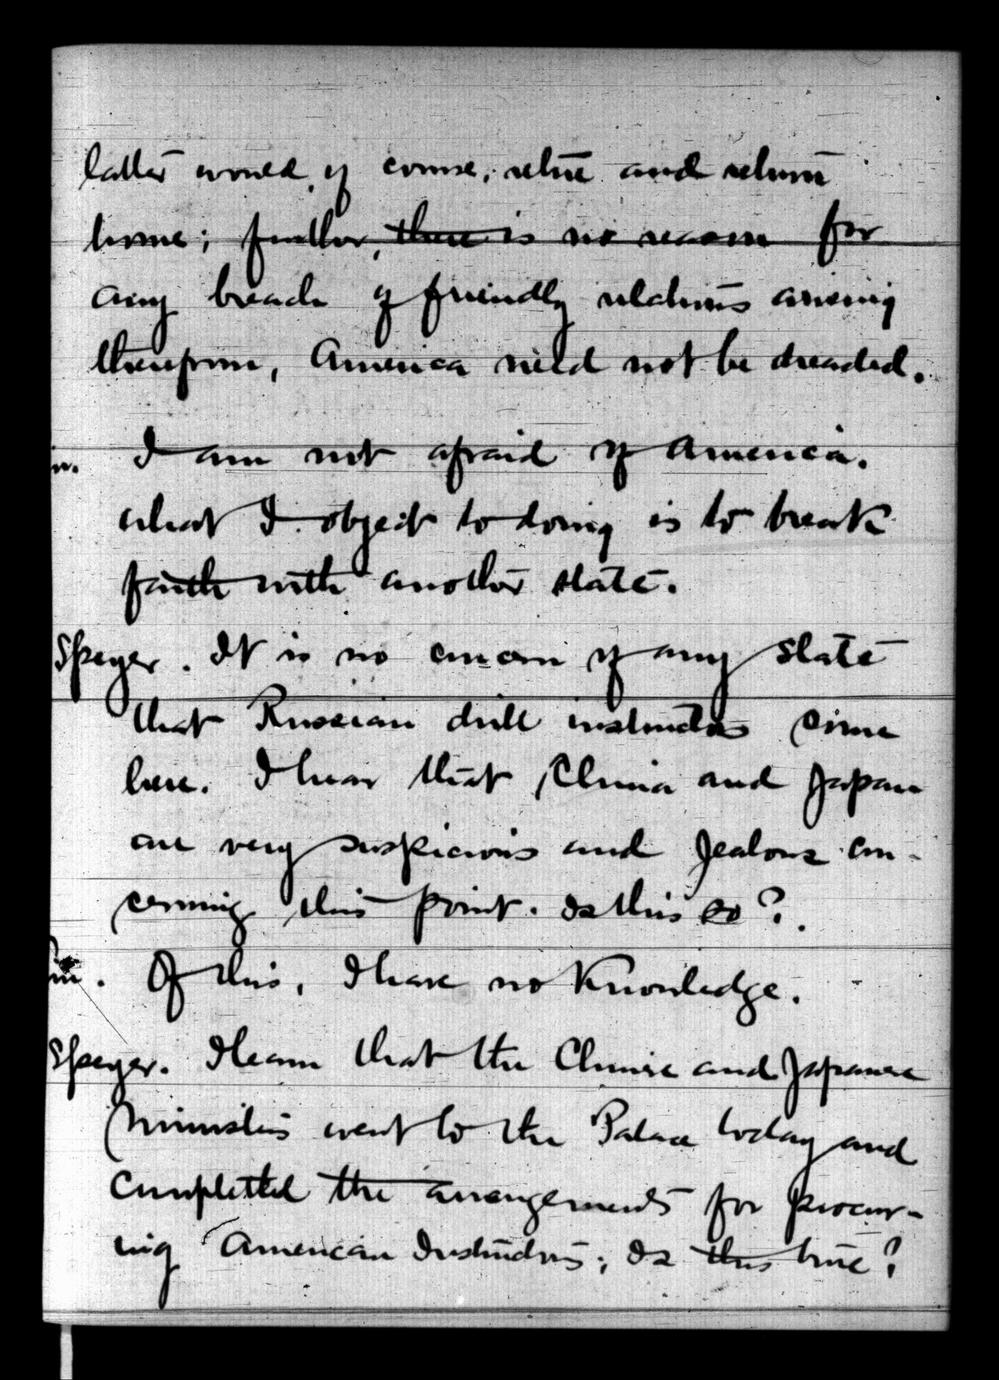 latter would, of course, retire and return
home; further, there is no reason for
any breach of friendly relations arising
therefrom, America need not be dreaded.
n. I am not afraid of America.
What I object to doing is to break
faith with another state.
Speyer. It is no concern of any state
that Russian drill instructors come
here. I hear that China and Japan
are very suspicious and jealous con-
cerning this point. Is this so?
in. Of this, I have no knowledge.
Speyer. I learn that the Chinese and Japanese
Ministers went to the Palace today and
completed the arrangements for procur-
ing American Instructors; Is this true?